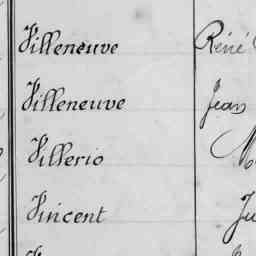 Villeneuve René
Villeneuve Jean
Villerio
Vincent